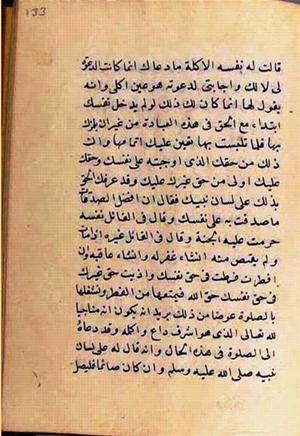 133
قالت له نفسه الاكلة ما دعاك انما كانت الدعوة
لى لا لك واجابتى لدعوته هو عين اكلى وانه
يقول لها انما كان لك ذلك لو لم يدخل نفسك
ابتداء مع الحق فى هذه العبادة من غير ان يلزك
بها فلما تلبست بها تعين عليك اتمامها وان
ذلك من حقك الذى اوجبته على نفسك وحقك
عليك اولى من حق غيرك عليك وقد عرفك الحق
بذلك على لسان نبيك فقال ان افضل الصدقات
ما صدقت به على نفسك وقال فى القاتل نفسه
حرمت عليه الجنة وقال فى القاتل غيره اذا مات
ولم يقتص منه ان شاء غفر له وان شاء عاقبه وان
افطرت فرطت فى حق نفسك واذيت حق غيرك
فى حق نفسك حق الله فيمنعها من الفطر ويشغلها
بالصلوة عوضا من ذلك يريد انه يكون انه مناجيا
لله تعالى الذى هو اشرف داع واكله وقد دعاه
الى الصلوة فى هذه الحال وانه قال له على لسان
نبيه صلى الله عليه وسلم وان كان صائما فليصل